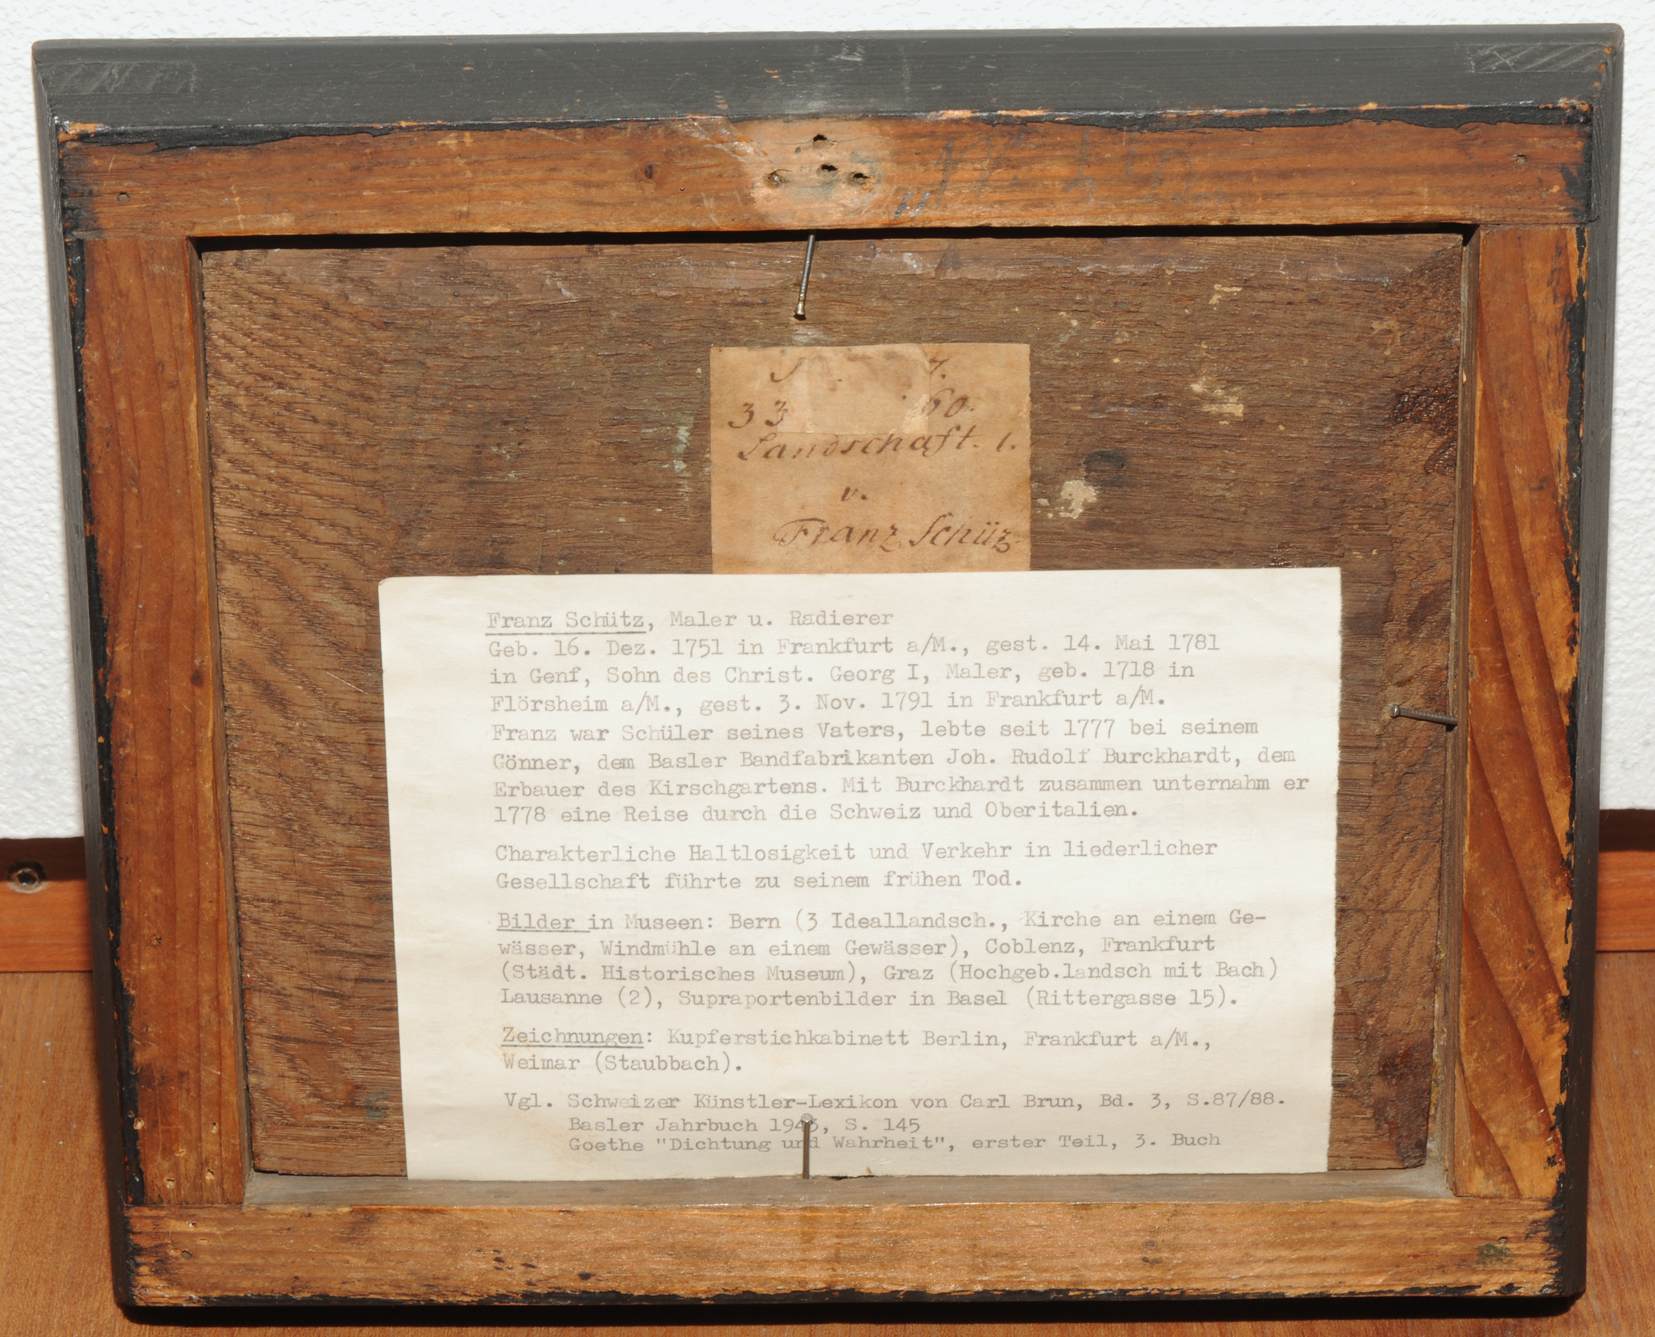 7.
33 60.
Landschaft. 1.
v.
Franz Schüz.
Franz Schütz, Maler u. Radierer
Geb. 16. Dez. 1751 in Frankfurt a/M., gest. 14. Mai 1781
in Genf, Sohn des Christ. Georg I, Maler, geb. 1718 in
Flörsheim a/M., gest. 3. Nov. 1791 in Frankfurt a/M.
Franz war Schüler seines Vaters, lebte seit 1777 bei seinem
Gönner, dem Basler Bandfabrikanten Joh. Rudolf Burckhardt, dem
Erbauer des Kirschgartens. Mit Burckhardt zusammen unternahm er
1778 eine Reise durch die Schweiz und Oberitalien.
Charakterliche Haltlosigkeit und Verkehr in liederlicher
Gesellschaft führte zu seinem frühen Tod.
Bilder in Museen: Bern (3 Ideallandsch., Kirche an einem Ge-
wässer, Windmühle an einem Gewässer), Coblenz, Frankfurt
(Städt. Historisches Museum), Graz (Hochgeb.landsch mit Bach)
Lausanne (2), Supraportenbilder in Basel (Rittergasse 15).
Zeichnungen: Kupferstichkabinett Berlin, Frankfurt a/M.,
Weimar (Staubbach).
Vgl. Schweizer Künstler-Lexikon von Carl Brun, Bd. 3, S.87/88.
Basler Jahrbuch 1943, S. 145
Goethe "Dichtung und Wahrheit", erster Teil, 3. Buch